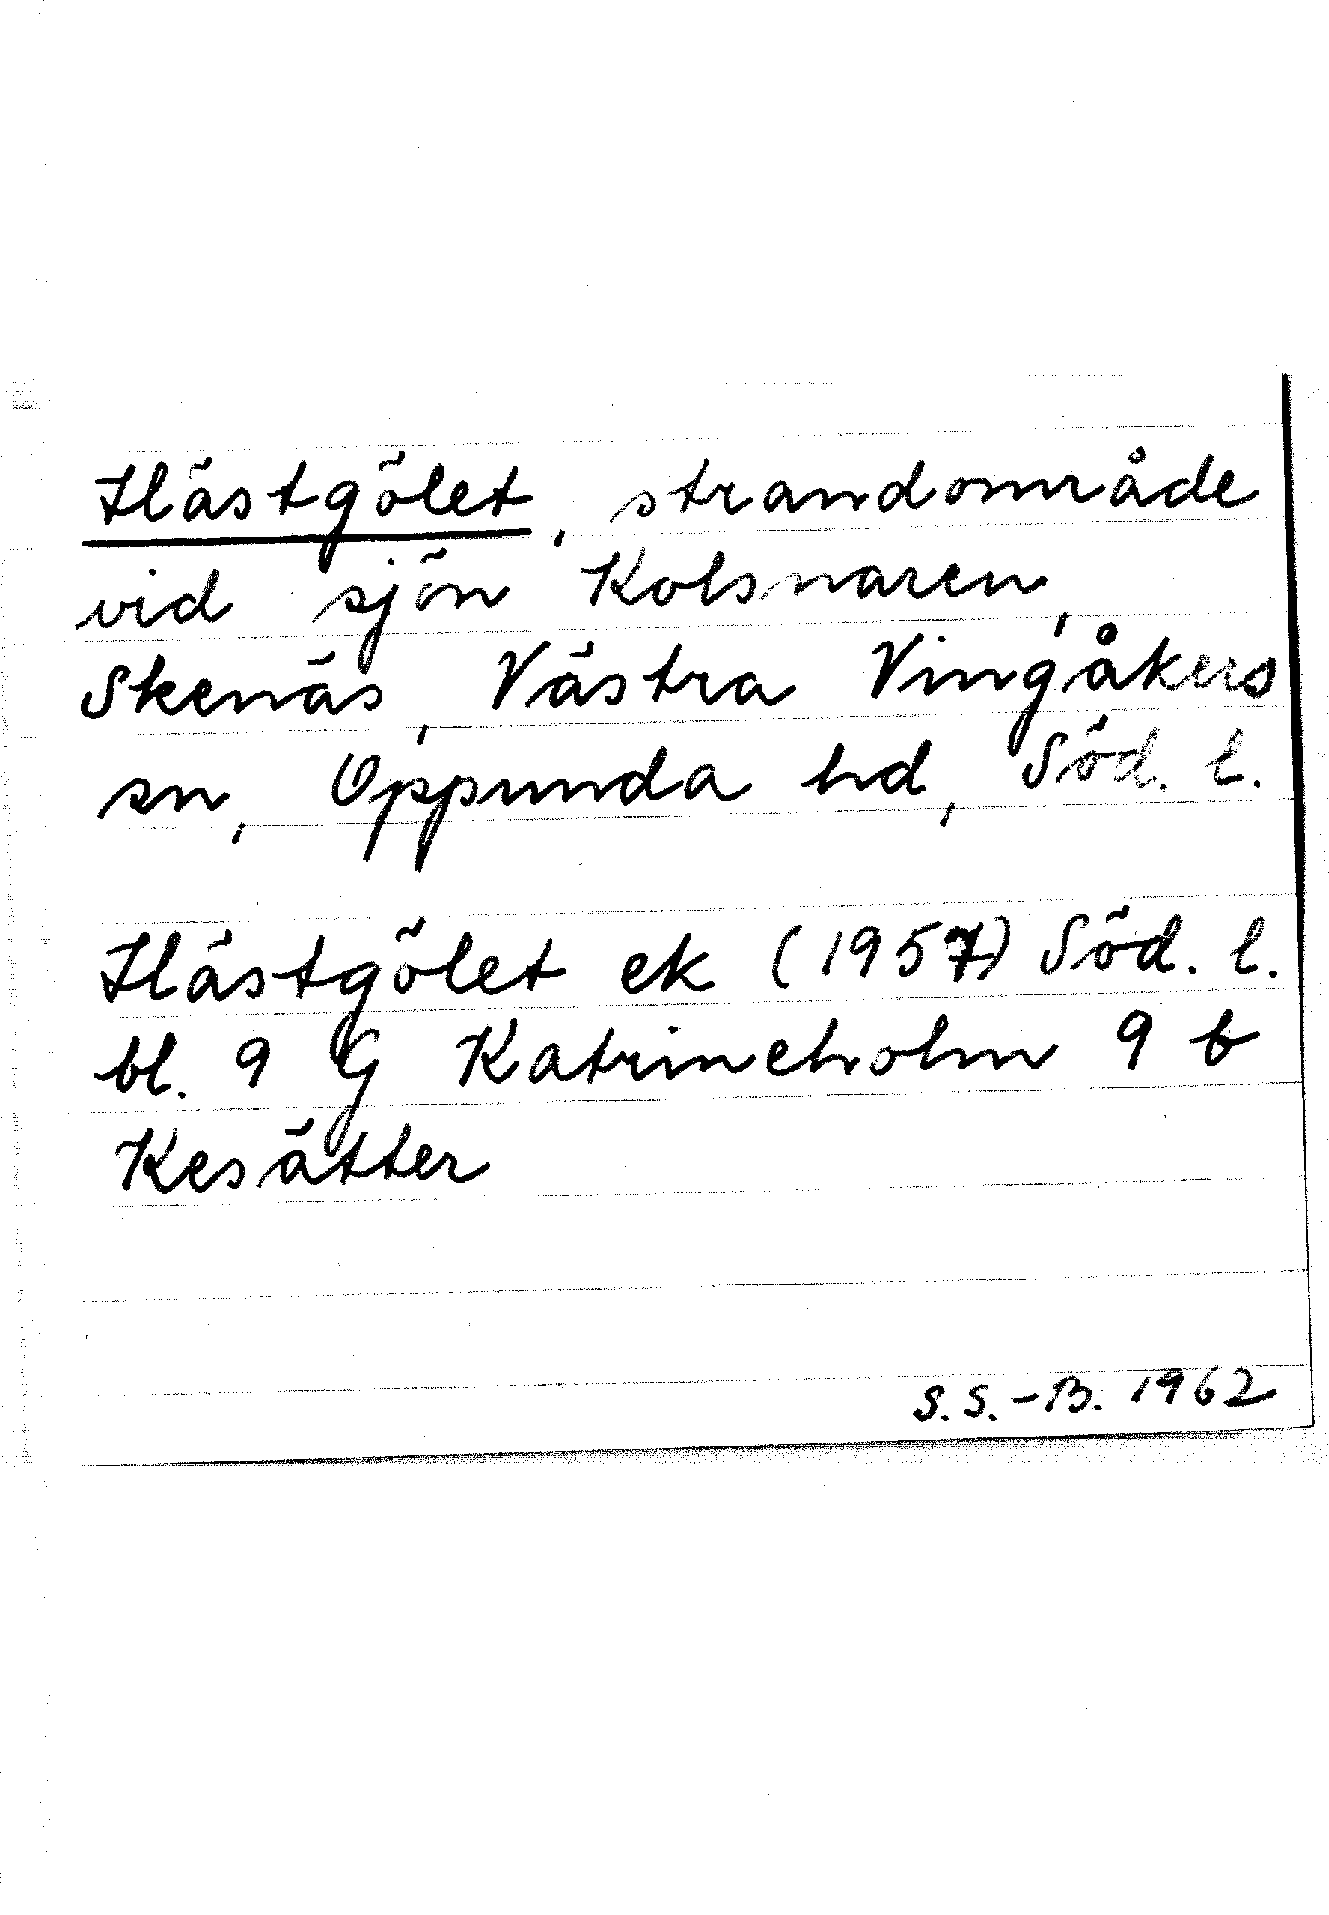 Hästgölet, strandområde
vid sjön Kolsnaren,
Skenäs, Västra Vingåkers
sn, Oppunda hd, Söd. l.
Hästgölet ek (1957) Söd. l.
bl. 9 G Katrineholm 9 b
Kesätter
S.S.-B. 1962